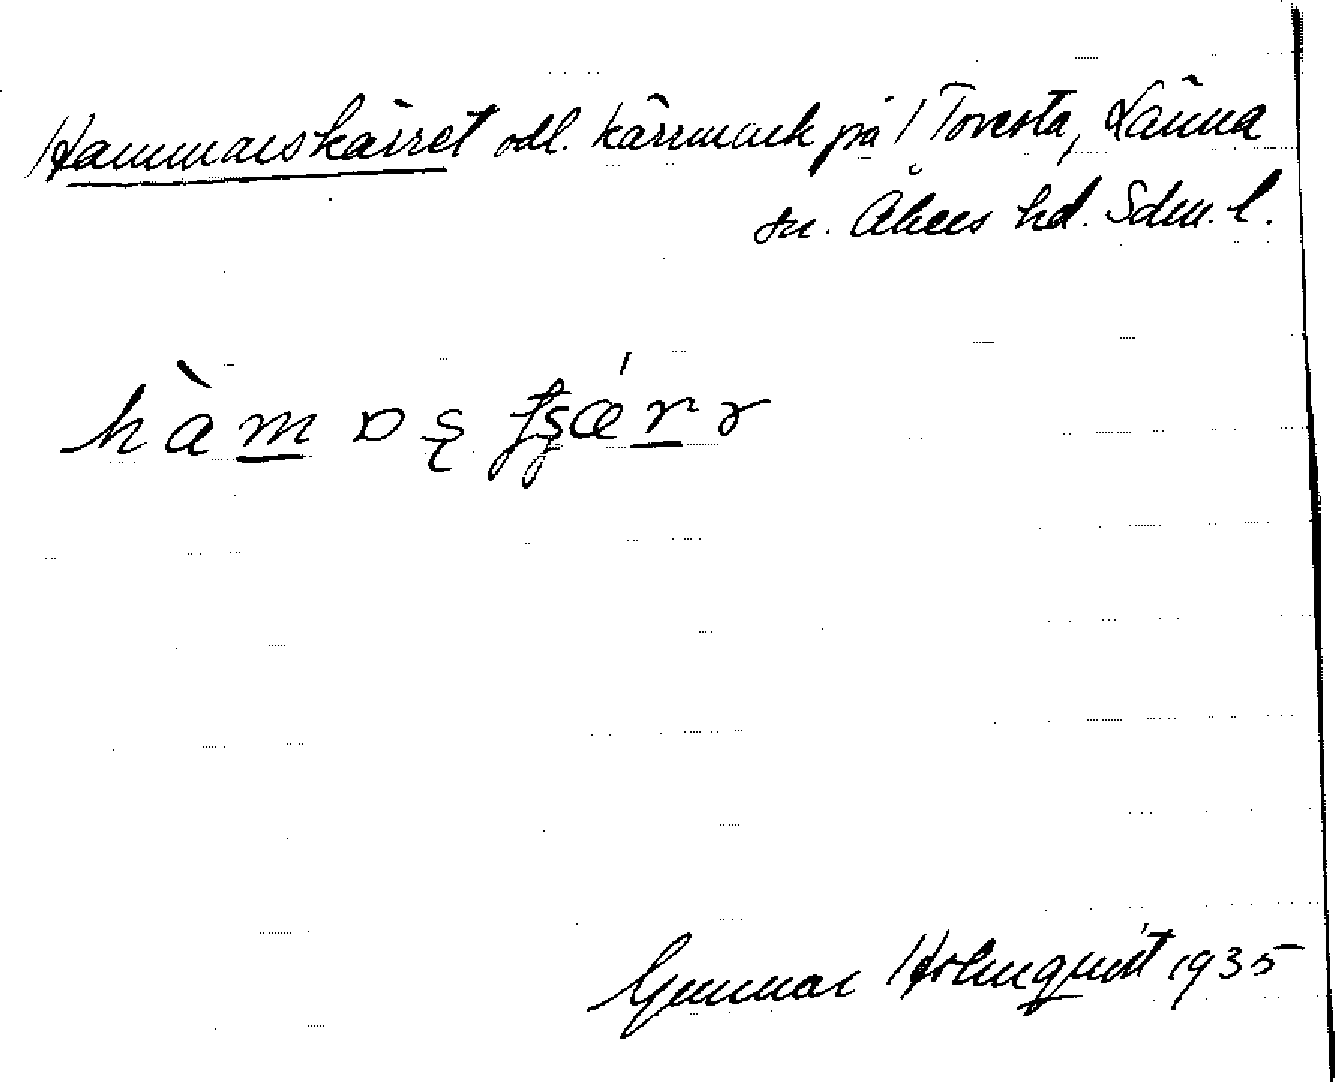 Hammarskärret odl. kärrmark på / Toresta, Länna
sn. Åkers hd. Sdm. l.
Gunnar Holmquist 1935